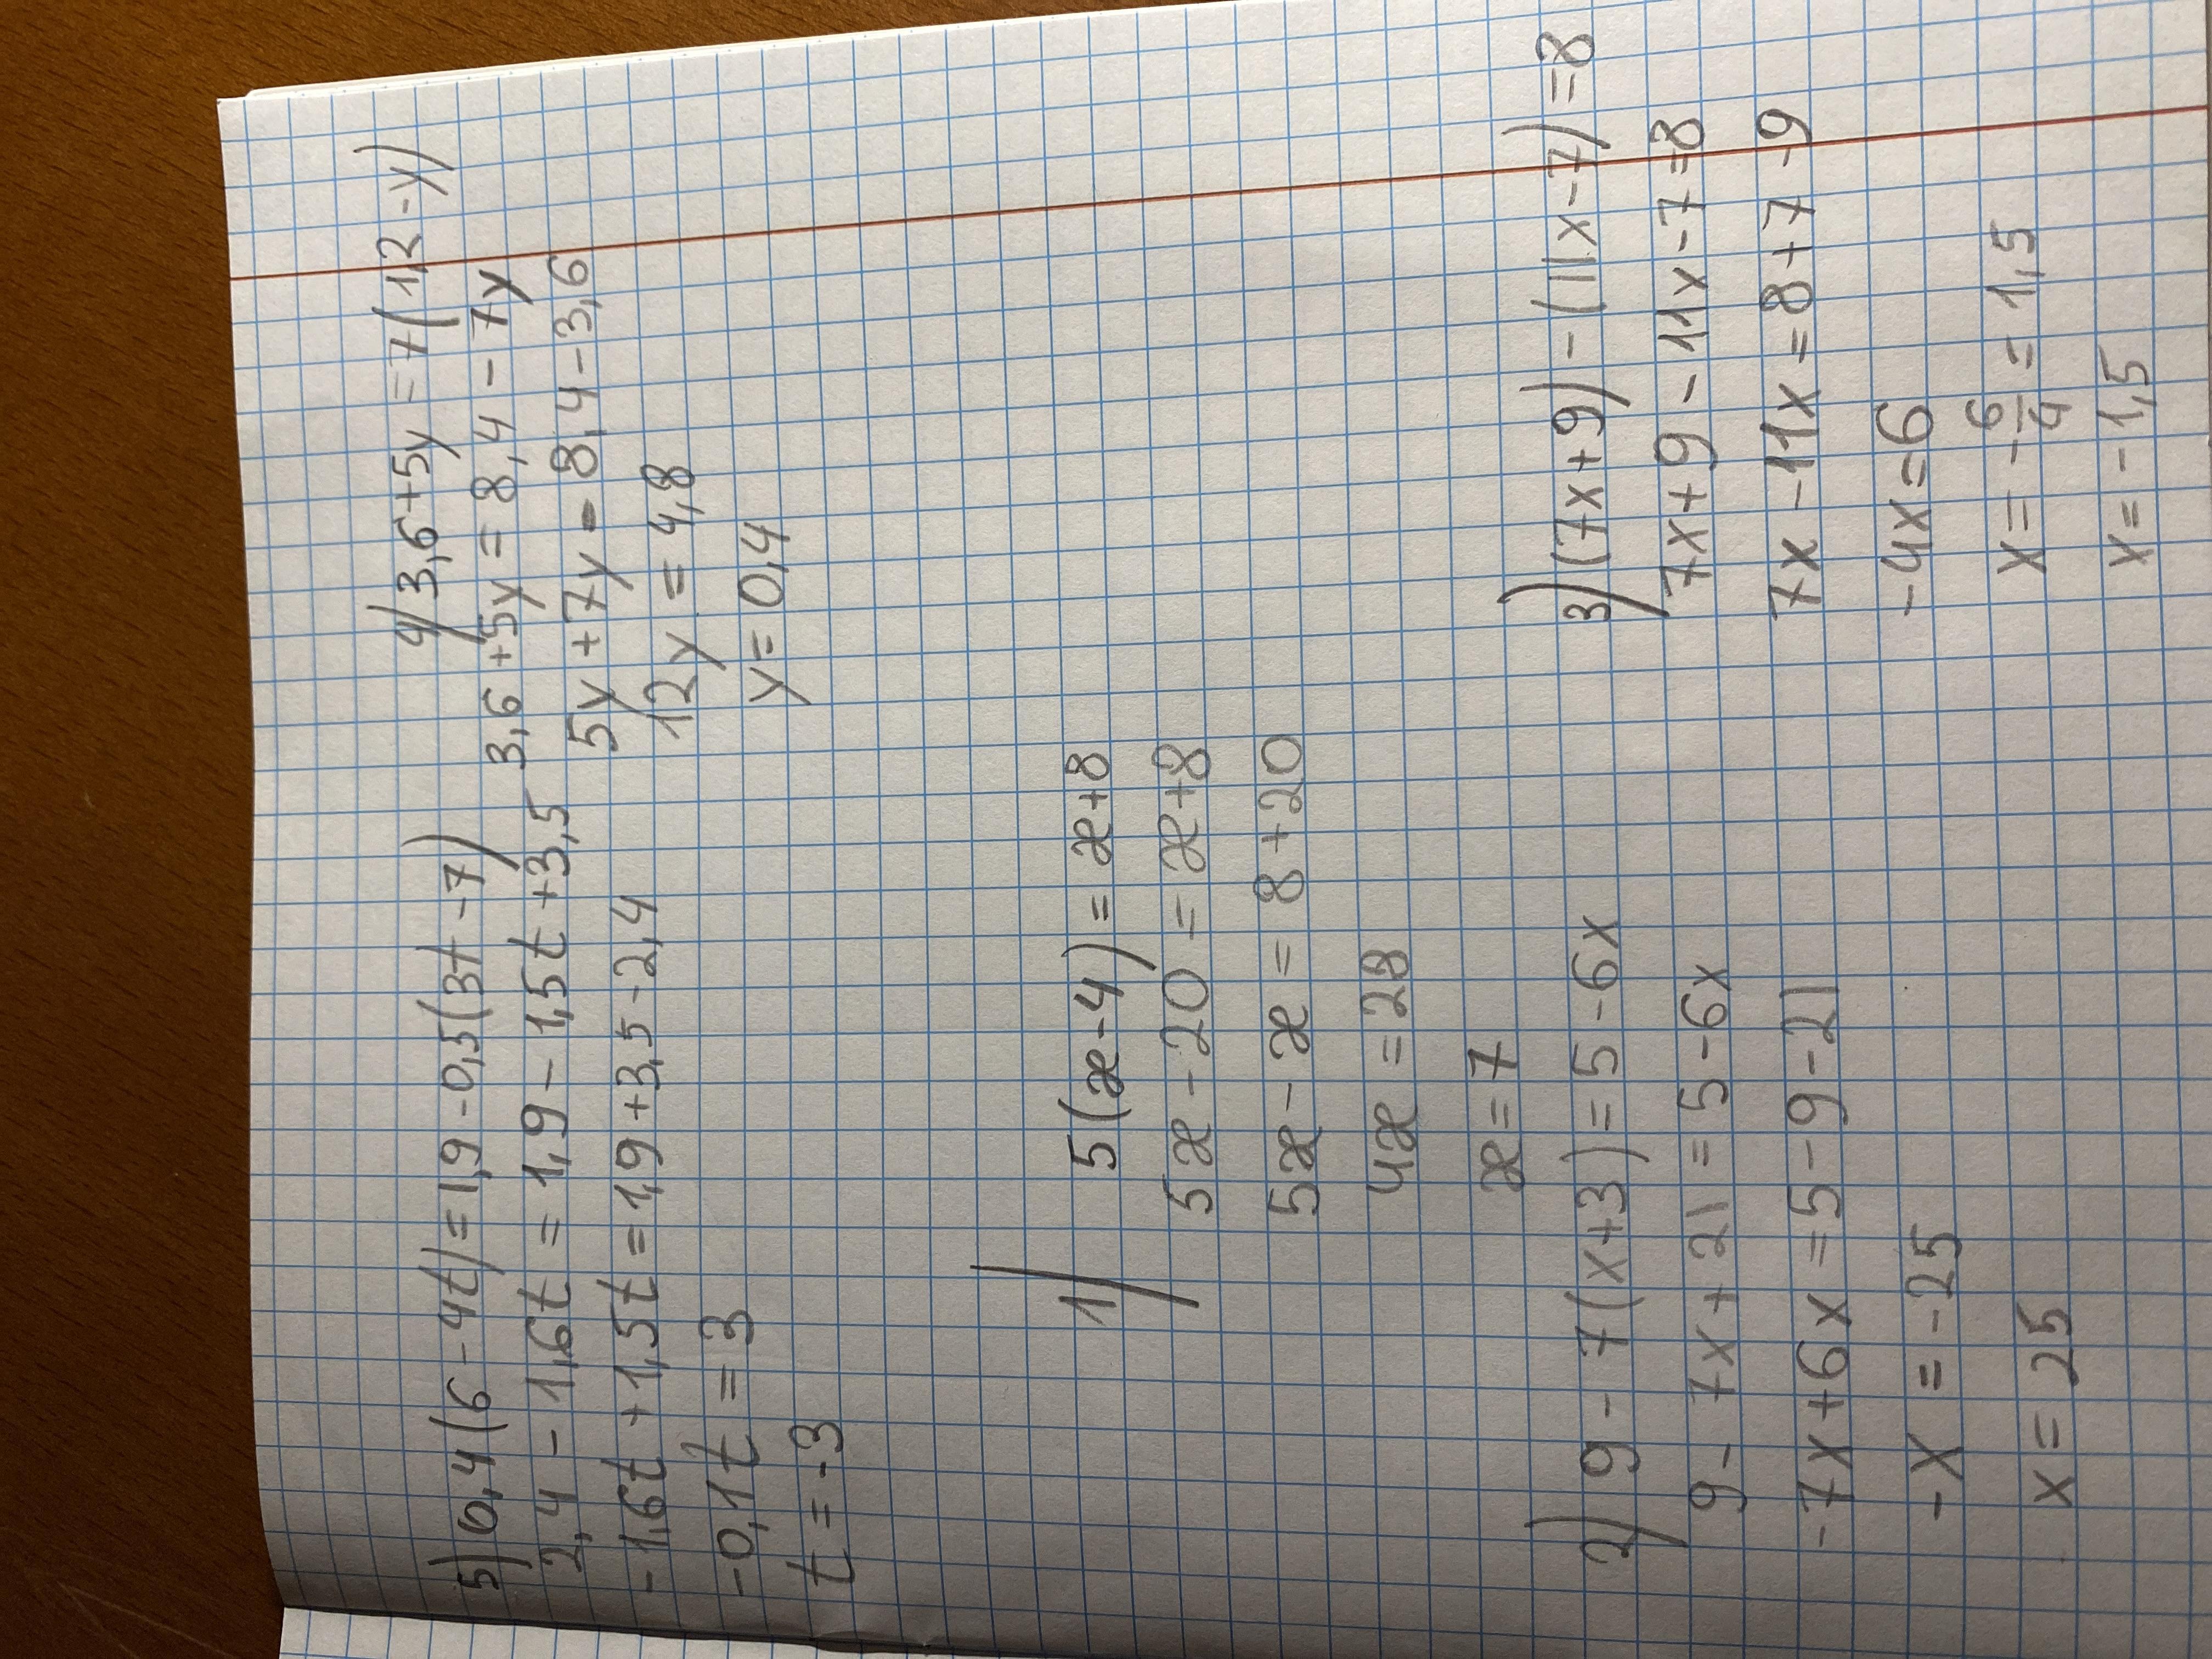 5) 0,4(6-4t)=1,9-0,5(3t-7)
2,4-1,6t=1,9-1,5t+3,5
-1,6t+1,5t=1,9+3,5-2,4
-0,1t=3
t=-3
4) 3,6+5y=7(1,2-y)
3,6+5y=8,4-7y
5y+7y=8,4-3,6
12y=4,8
y=0,4
1) 5(x-4)=x+8
5x-20=x+8
5x-x=8+20
4x=28
x=7
2) 9-7(x+3)=5-6x
9-7x+21=5-6x
-7x+6x=5-9-21
-x=-25
x=25
3) (7x+9)-(11x-7)=8
7x+9-11x-7=8
7x-11x=8+7-9
-4x=6
x=-6/4=1,5
x=-1,5